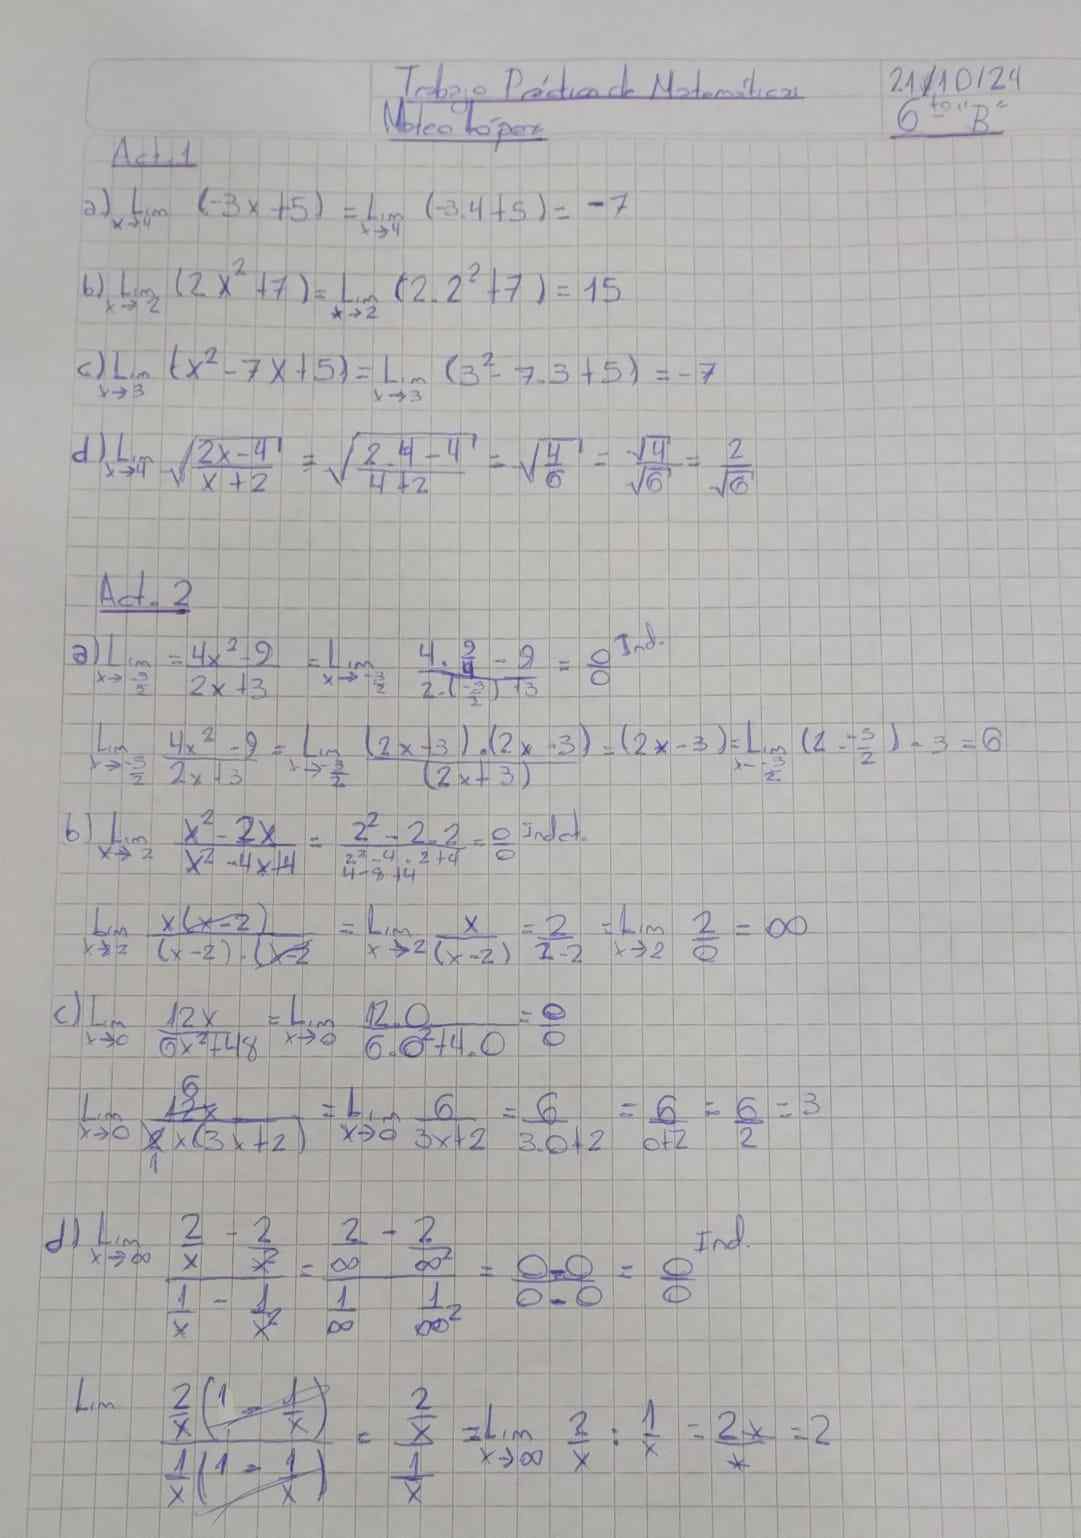 Trabajo Práctico de Matemáticas 21/10/24
Mateo López 6to "B"
Act. 1
a) Lim x→4 (-3x+5) = Lim x→4 (-3.4+5) = -7
b) Lim x→2 (2x²+7) = Lim x→2 (2.2²+7) = 15
c) Lim x→3 (x²-7x+5) = Lim x→3 (3²-7.3+5) = -7
d) Lim x→4 √(2x-4 / x+2) = √(2.4-4 / 4+2) = √(4/6) = √4/√6 = 2/√6
Act. 2
a) Lim x→-3/2 = 4x²-9 / 2x+3 = Lim x→-3/2 4.9/4-9 / 2.(-3/2)+3 = 0/0 Ind.
Lim x→-3/2 4x²-9 / 2x+3 = Lim x→-3/2 (2x+3).(2x-3) / (2x+3) = (2x-3) = Lim x→-3/2 (2.-3/2)-3 = 6
b) Lim x→2 x²-2x / x²-4x+4 = 2²-2.2 / 2²-4.2+4 = 0/0 Indet.
4-8+4
Lim x→2 x(x-2) / (x-2).(x-2 = Lim x→2 x / (x-2) = 2 / 2-2 = Lim x→2 2/0 = ∞
c) Lim x→0 12x / 6x²+48 = Lim x→0 12.0 / 6.0²+4.0 = 0/0
6
Lim x→0 12x / 2x(3x+2) = Lim x→0 6 / 3x+2 = 6 / 3.0+2 = 6 / 0+2 = 6/2 = 3
1
d) Lim x→∞ 2/x - 2/x² / 1/x - 1/x² = 2/∞ - 2/∞² / 1/∞ 1/∞² = 0-0 / 0-0 = 0/0 Ind.
Lim 2/x (1 - 1/x) / 1/x (1 - 1/x) = 2/x / 1/x = Lim x→∞ 2/x : 1/x = 2x/x = 2